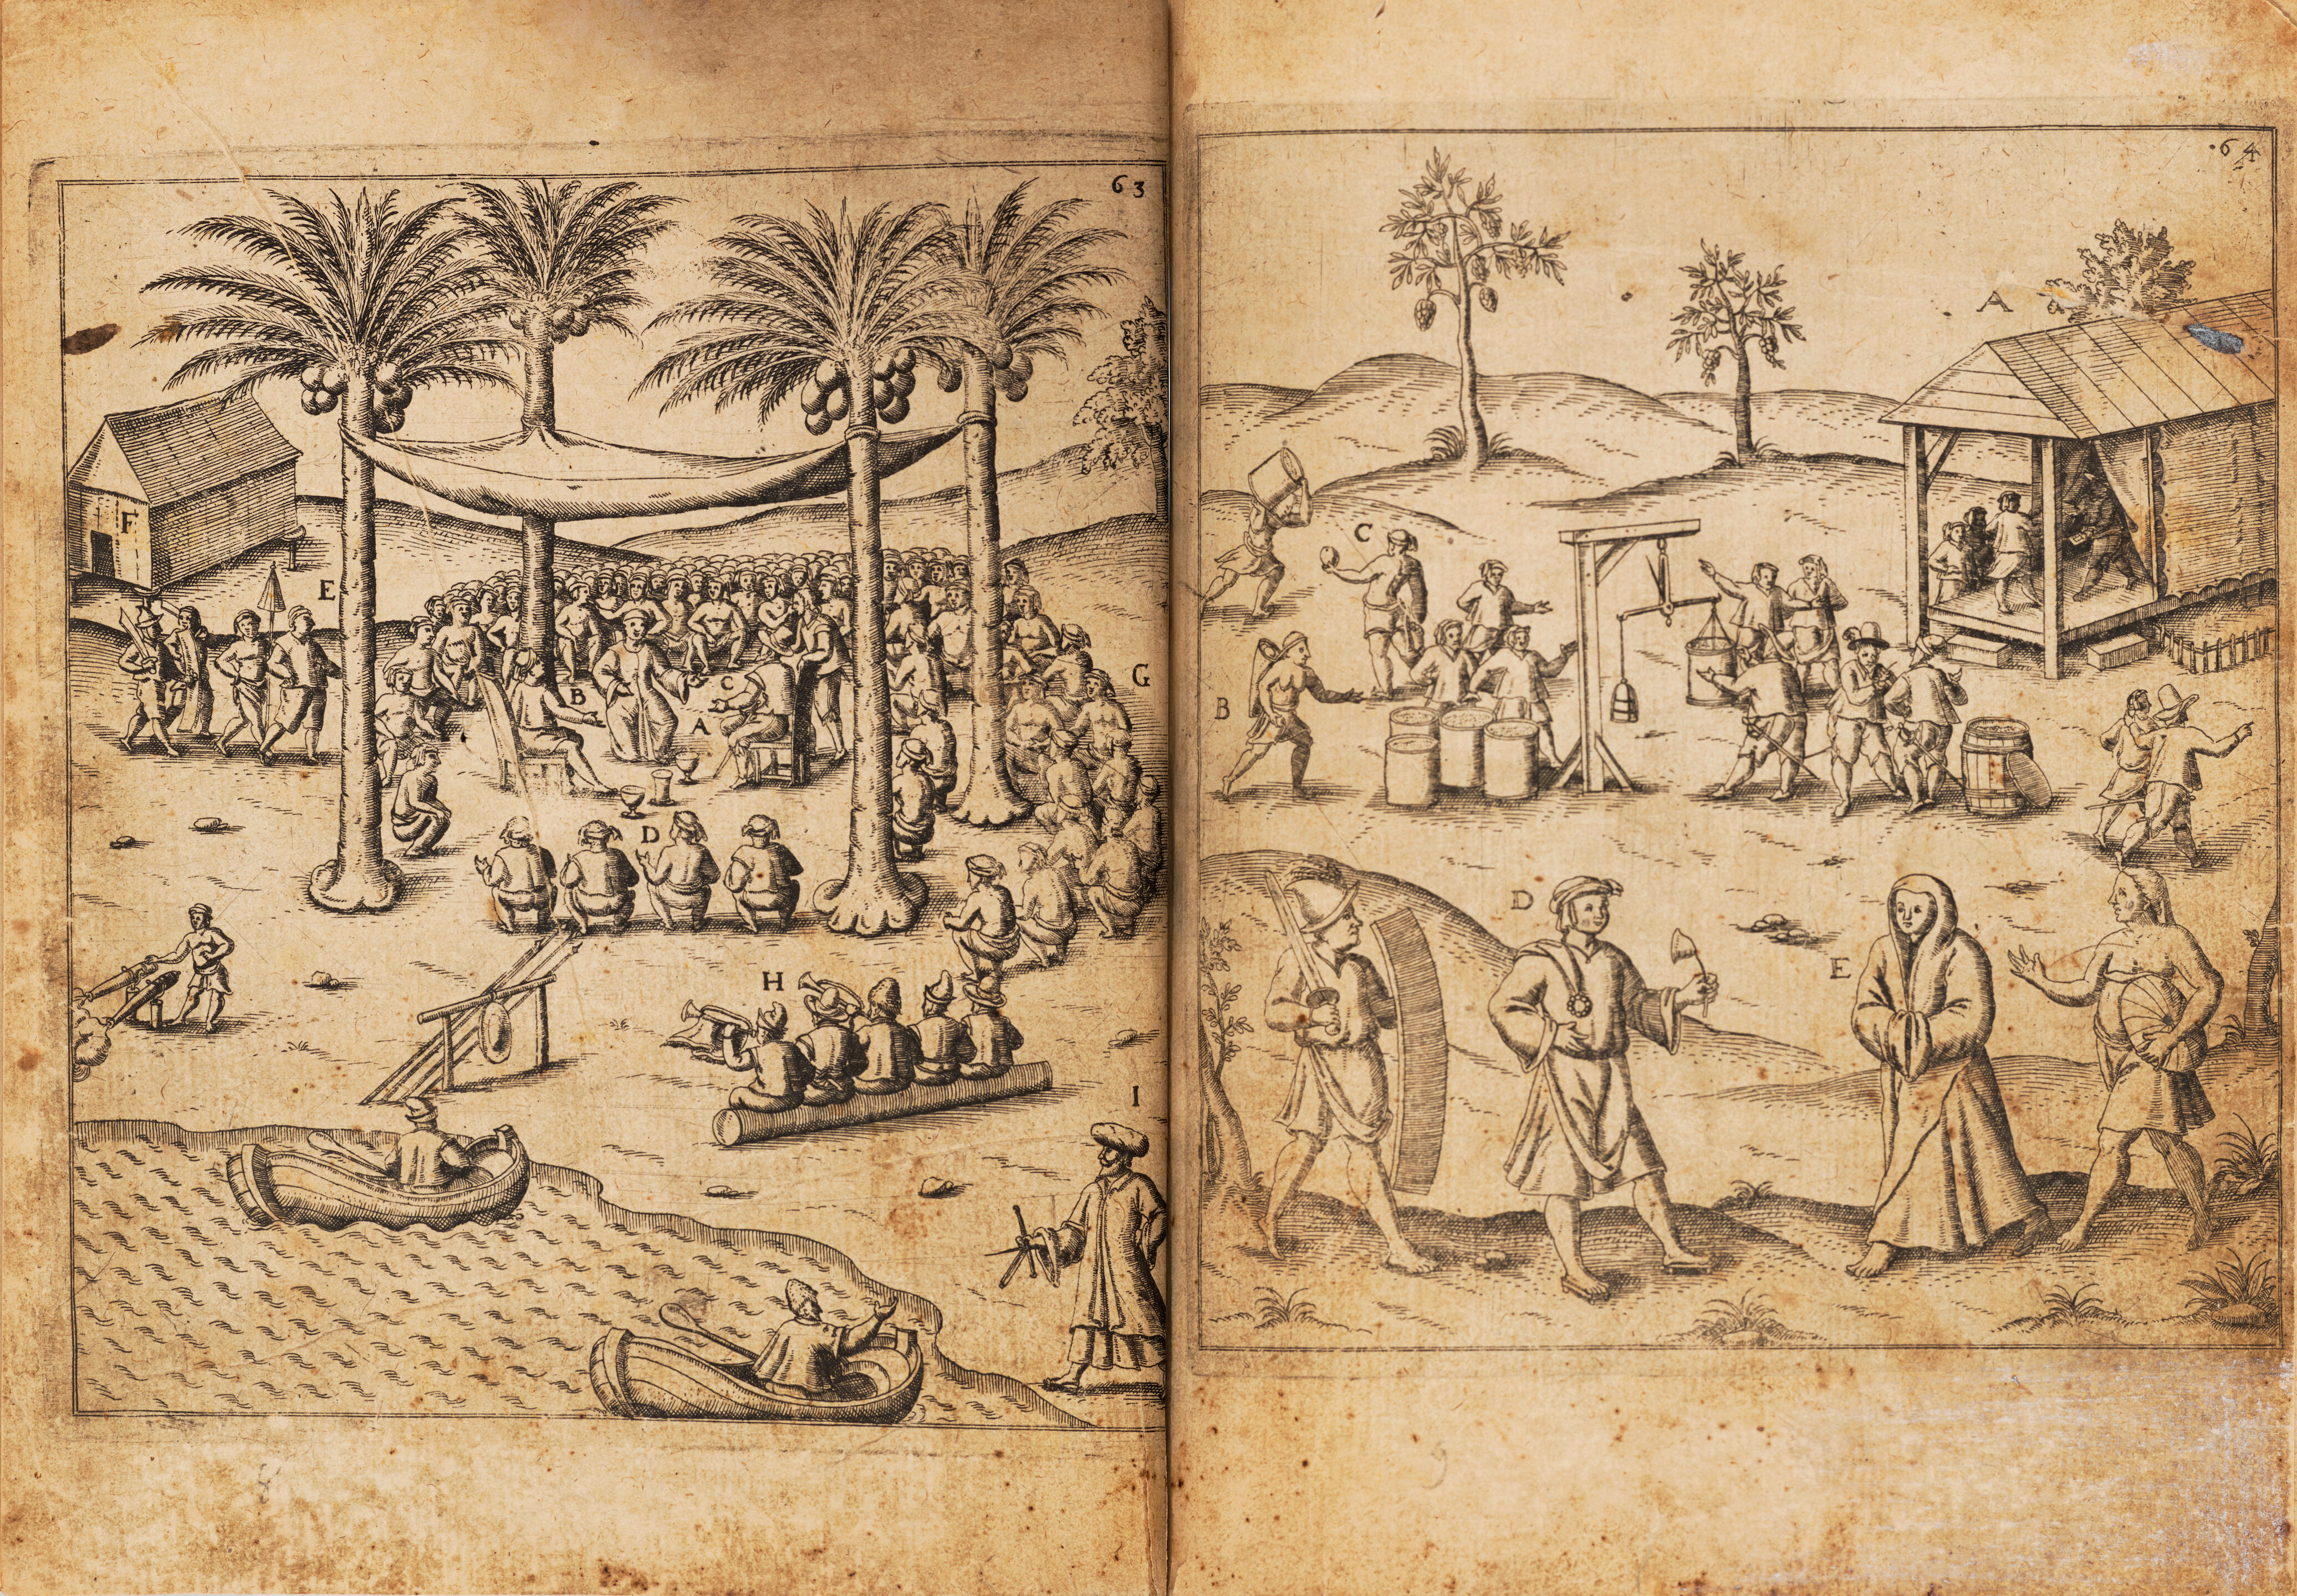 63
F
E
B
C
A
G
D
H
I
64
A
C
B
D
E